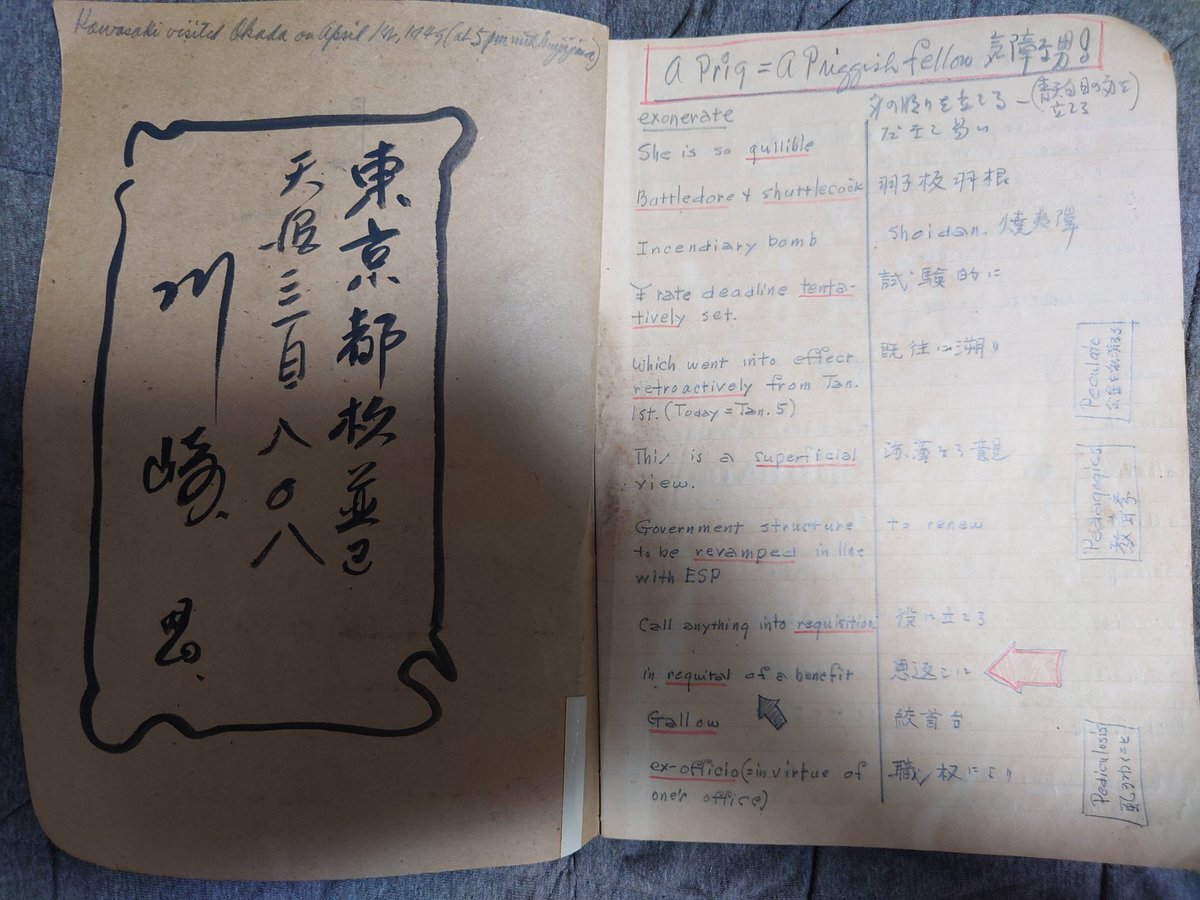 Kawasaki visited Okada on April 1st, 1949 (at 5 pm with
東京都杉並區
天沼三ノ八〇八
川崎
A Prig = A Priggish fellow 気障な男!
exonerate 身の明りを立てる (青天白日の身を立てる)
She is so gullible だまし易い
Battledore & shuttlecock 羽子板 羽根
Incendiary bomb Shoidan. 焼夷弾
¥ rate deadline tenta- 試験的に
tively set.
which went into effect 既往に溯り
retroactively from Jan.
1st. (Today = Jan. 5)
This is a superficial 浅薄なる意見
view.
Government structure to renew
to be revamped in line
with ESP
Call anything into requisition 役に立てる
in requital of a benefit 恩返しに
Gallow 絞首台
ex-officio (= in virtue of 職権により
one's office)
Peculate
公金を
Pedagogics
教育学
Pediculosis